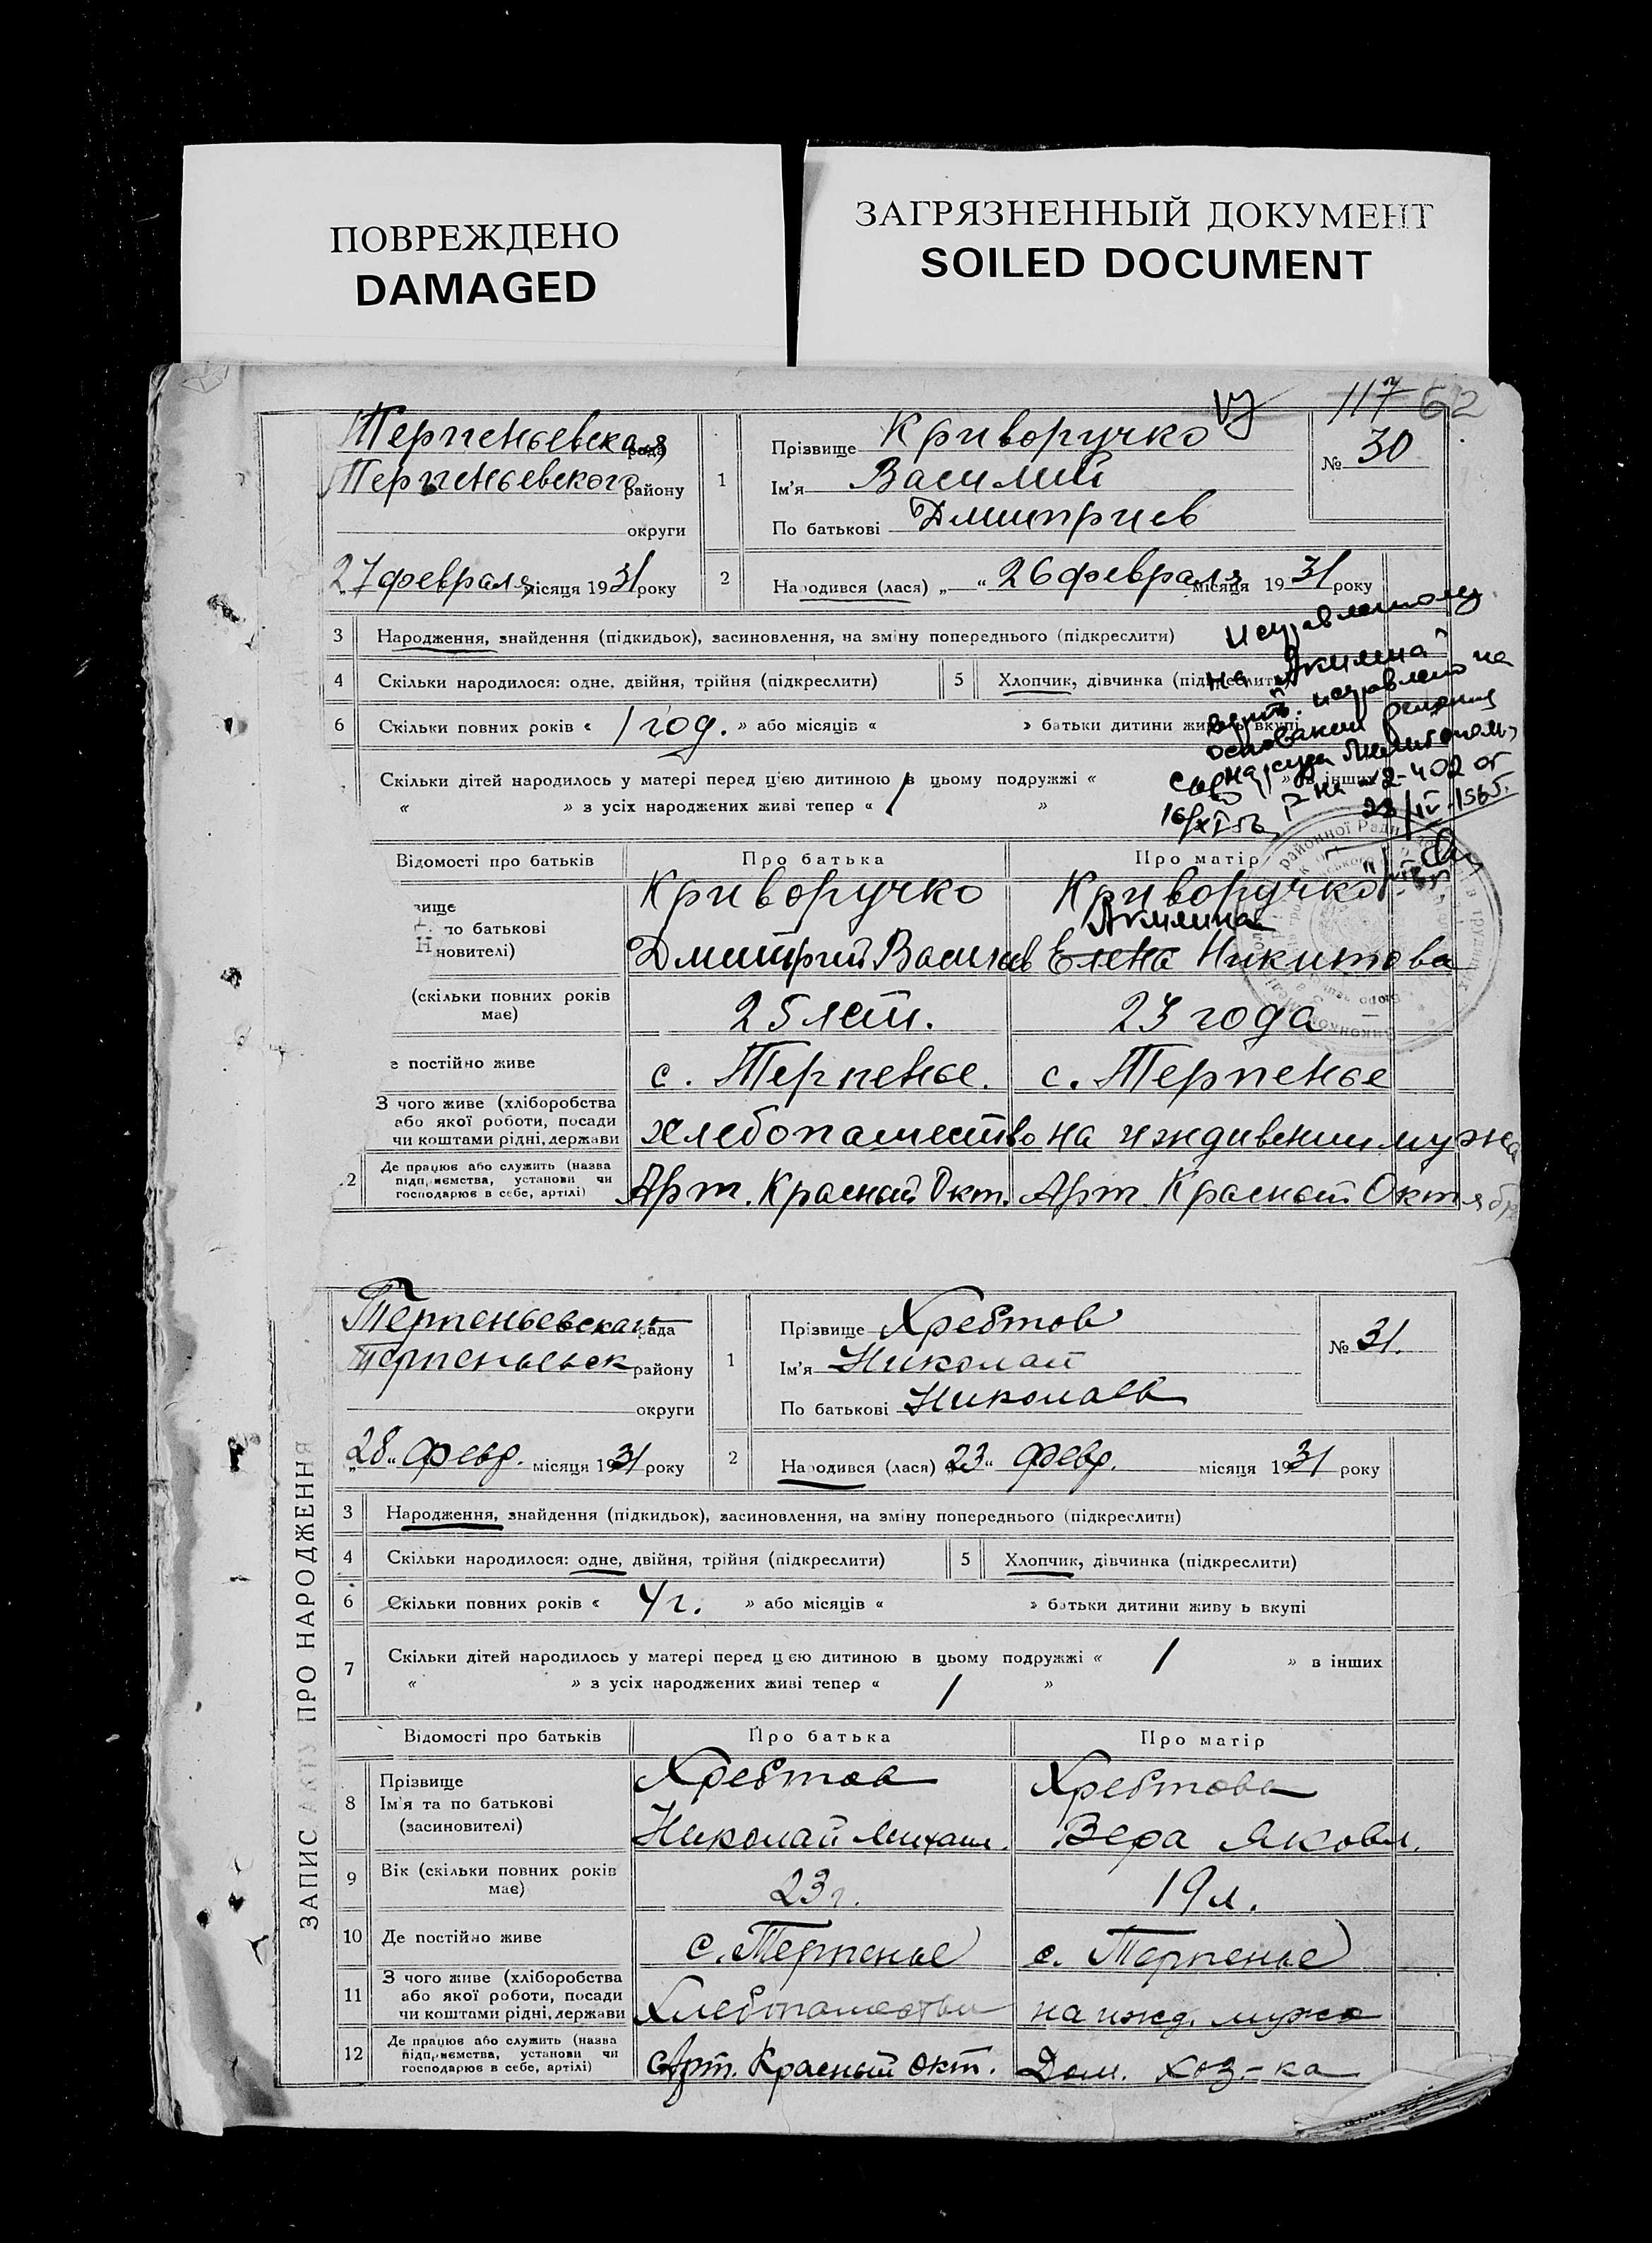 ПОВРЕЖДЕНО
DAMAGED
ЗАГРЯЗНЕННЫЙ ДОКУМЕНТ
SOILED DOCUMENT
117 62
Терпеньевская рада
Терпеньевского району
округи
1
Прізвище Криворучко
Ім'я Василий
По батькові Дмитриев
№ 30
27 февраля місяця 1931 року
2
Народився (лася) „ “ 26 февраля місяця 1931 року
3 Народження, знайдення (підкидьок), засиновлення, на зміну попереднього (підкреслити)
4 Скільки народилося: одне, двійня, трійня (підкреслити)
5 Хлопчик, дівчинка
6 Скільки повних років « 1 год. » або місяців « » батьки дитини вкупі
Скільки дітей народилось у матері перед цією дитиною в цьому подружжі « » в інших
« » з усіх народжених живі тепер « 1 »
на Акилина
исправлено на
основании решения
2-402 от
Відомості про батьків
Про батька
Про матір
по батькові
новителі)
Криворучко
Дмитрий Васильев
Криворучко
Акилина
Елена Никитова
(скільки повних років має)
25 лет.
23 года
постійно живе
с. Терпенье.
с. Терпенье
З чого живе (хліборобства
або якої роботи, посади
чи коштами рідні, держави
хлебопашество
на иждивении мужа
Де працює або служить (назва
підприємства, установи чи
господарює в себе, артілі)
Арт. Красный Окт.
Арт. Красный Октябр
ЗАПИС АКТУ ПРО НАРОДЖЕННЯ
Терпеньевская рада
Терпеньевск району
округи
1
Прізвище Хребтов
Ім'я Николай
По батькові Николаев
№ 31.
„28“ февр. місяця 1931 року
2
Народився (лася) „23“ февр. місяця 1931 року
3 Народження, знайдення (підкидьок), засиновлення, на зміну попереднього (підкреслити)
4 Скільки народилося: одне, двійня, трійня (підкреслити)
5 Хлопчик, дівчинка (підкреслити)
6 Скільки повних років « 4 г. » або місяців « » батьки дитини живуть вкупі
7 Скільки дітей народилось у матері перед цією дитиною в цьому подружжі « 1 » в інших
« » з усіх народжених живі тепер « 1 »
Відомості про батьків
Про батька
Про матір
8 Прізвище
Ім'я та по батькові
(засиновителі)
Хребтов
Николай Михаил.
Хребтова
Вера Яковл.
9 Вік (скільки повних років має)
23 г.
19 л.
10 Де постійно живе
с. Терпенье
с. Терпенье
11 З чого живе (хліборобства
або якої роботи, посади
чи коштами рідні, держави
Хлебопашество
на ижд. мужа
12 Де працює або служить (назва
підприємства, установи чи
господарює в себе, артілі)
Арт. Красный Окт.
Дом. хоз-ка